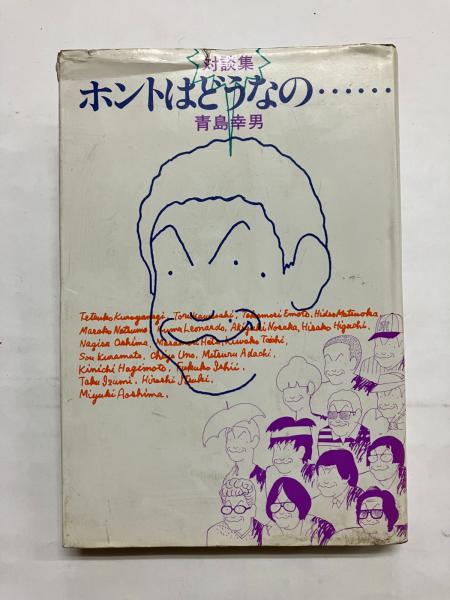 対談集
ホントはどうなの……
青島幸男
Tetsuko Kuroyanagi, Toru Kawaoshi, Takamori Emoto, Hideo Matsuoka,
Masako Natsume, Yuma Leonardo, Akiyuki Nosaka, Hisako Higuchi,
Nagisa Oshima, Masanori Hata, Kiwako Taichi,
Sou Kuramoto, Chiyo Uno, Mitsuru Adachi,
Kinichi Hagimoto, Fukuko Ishii,
Taku Izumi, Hiroshi Itsuki,
Miyuki Aoshima.